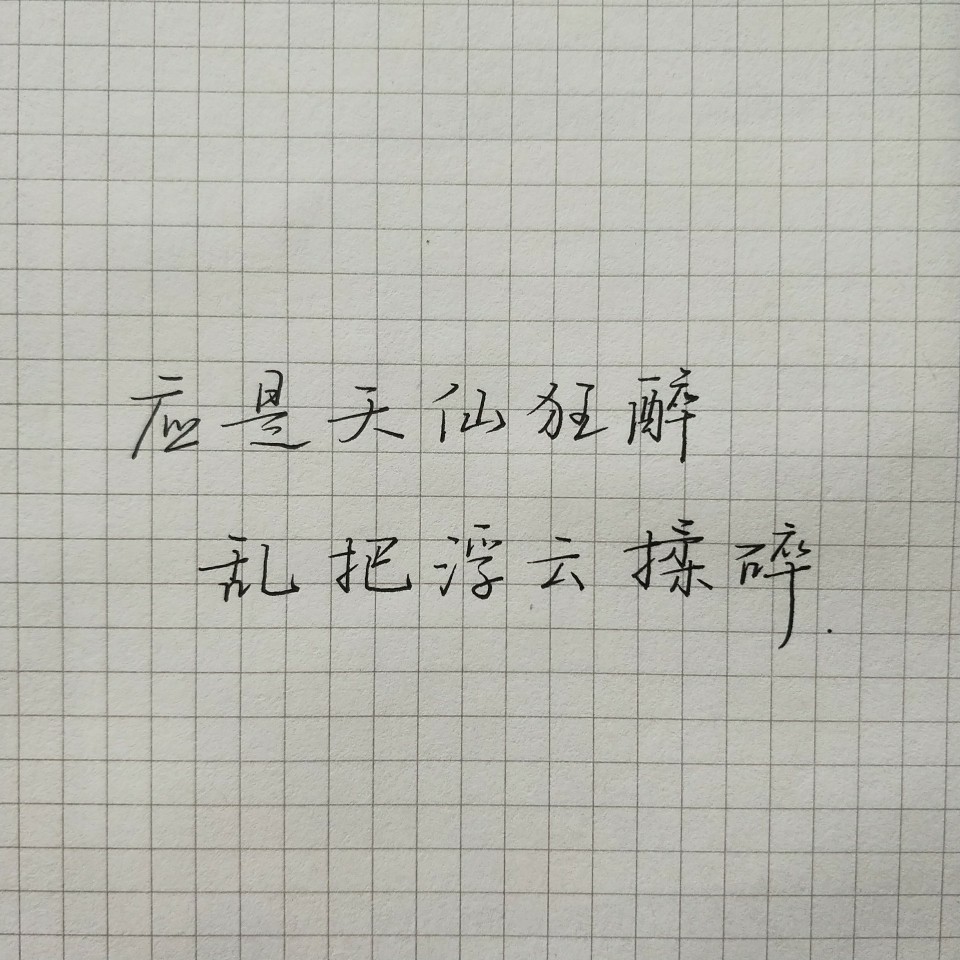 应是天仙狂醉
乱把浮云揉碎.